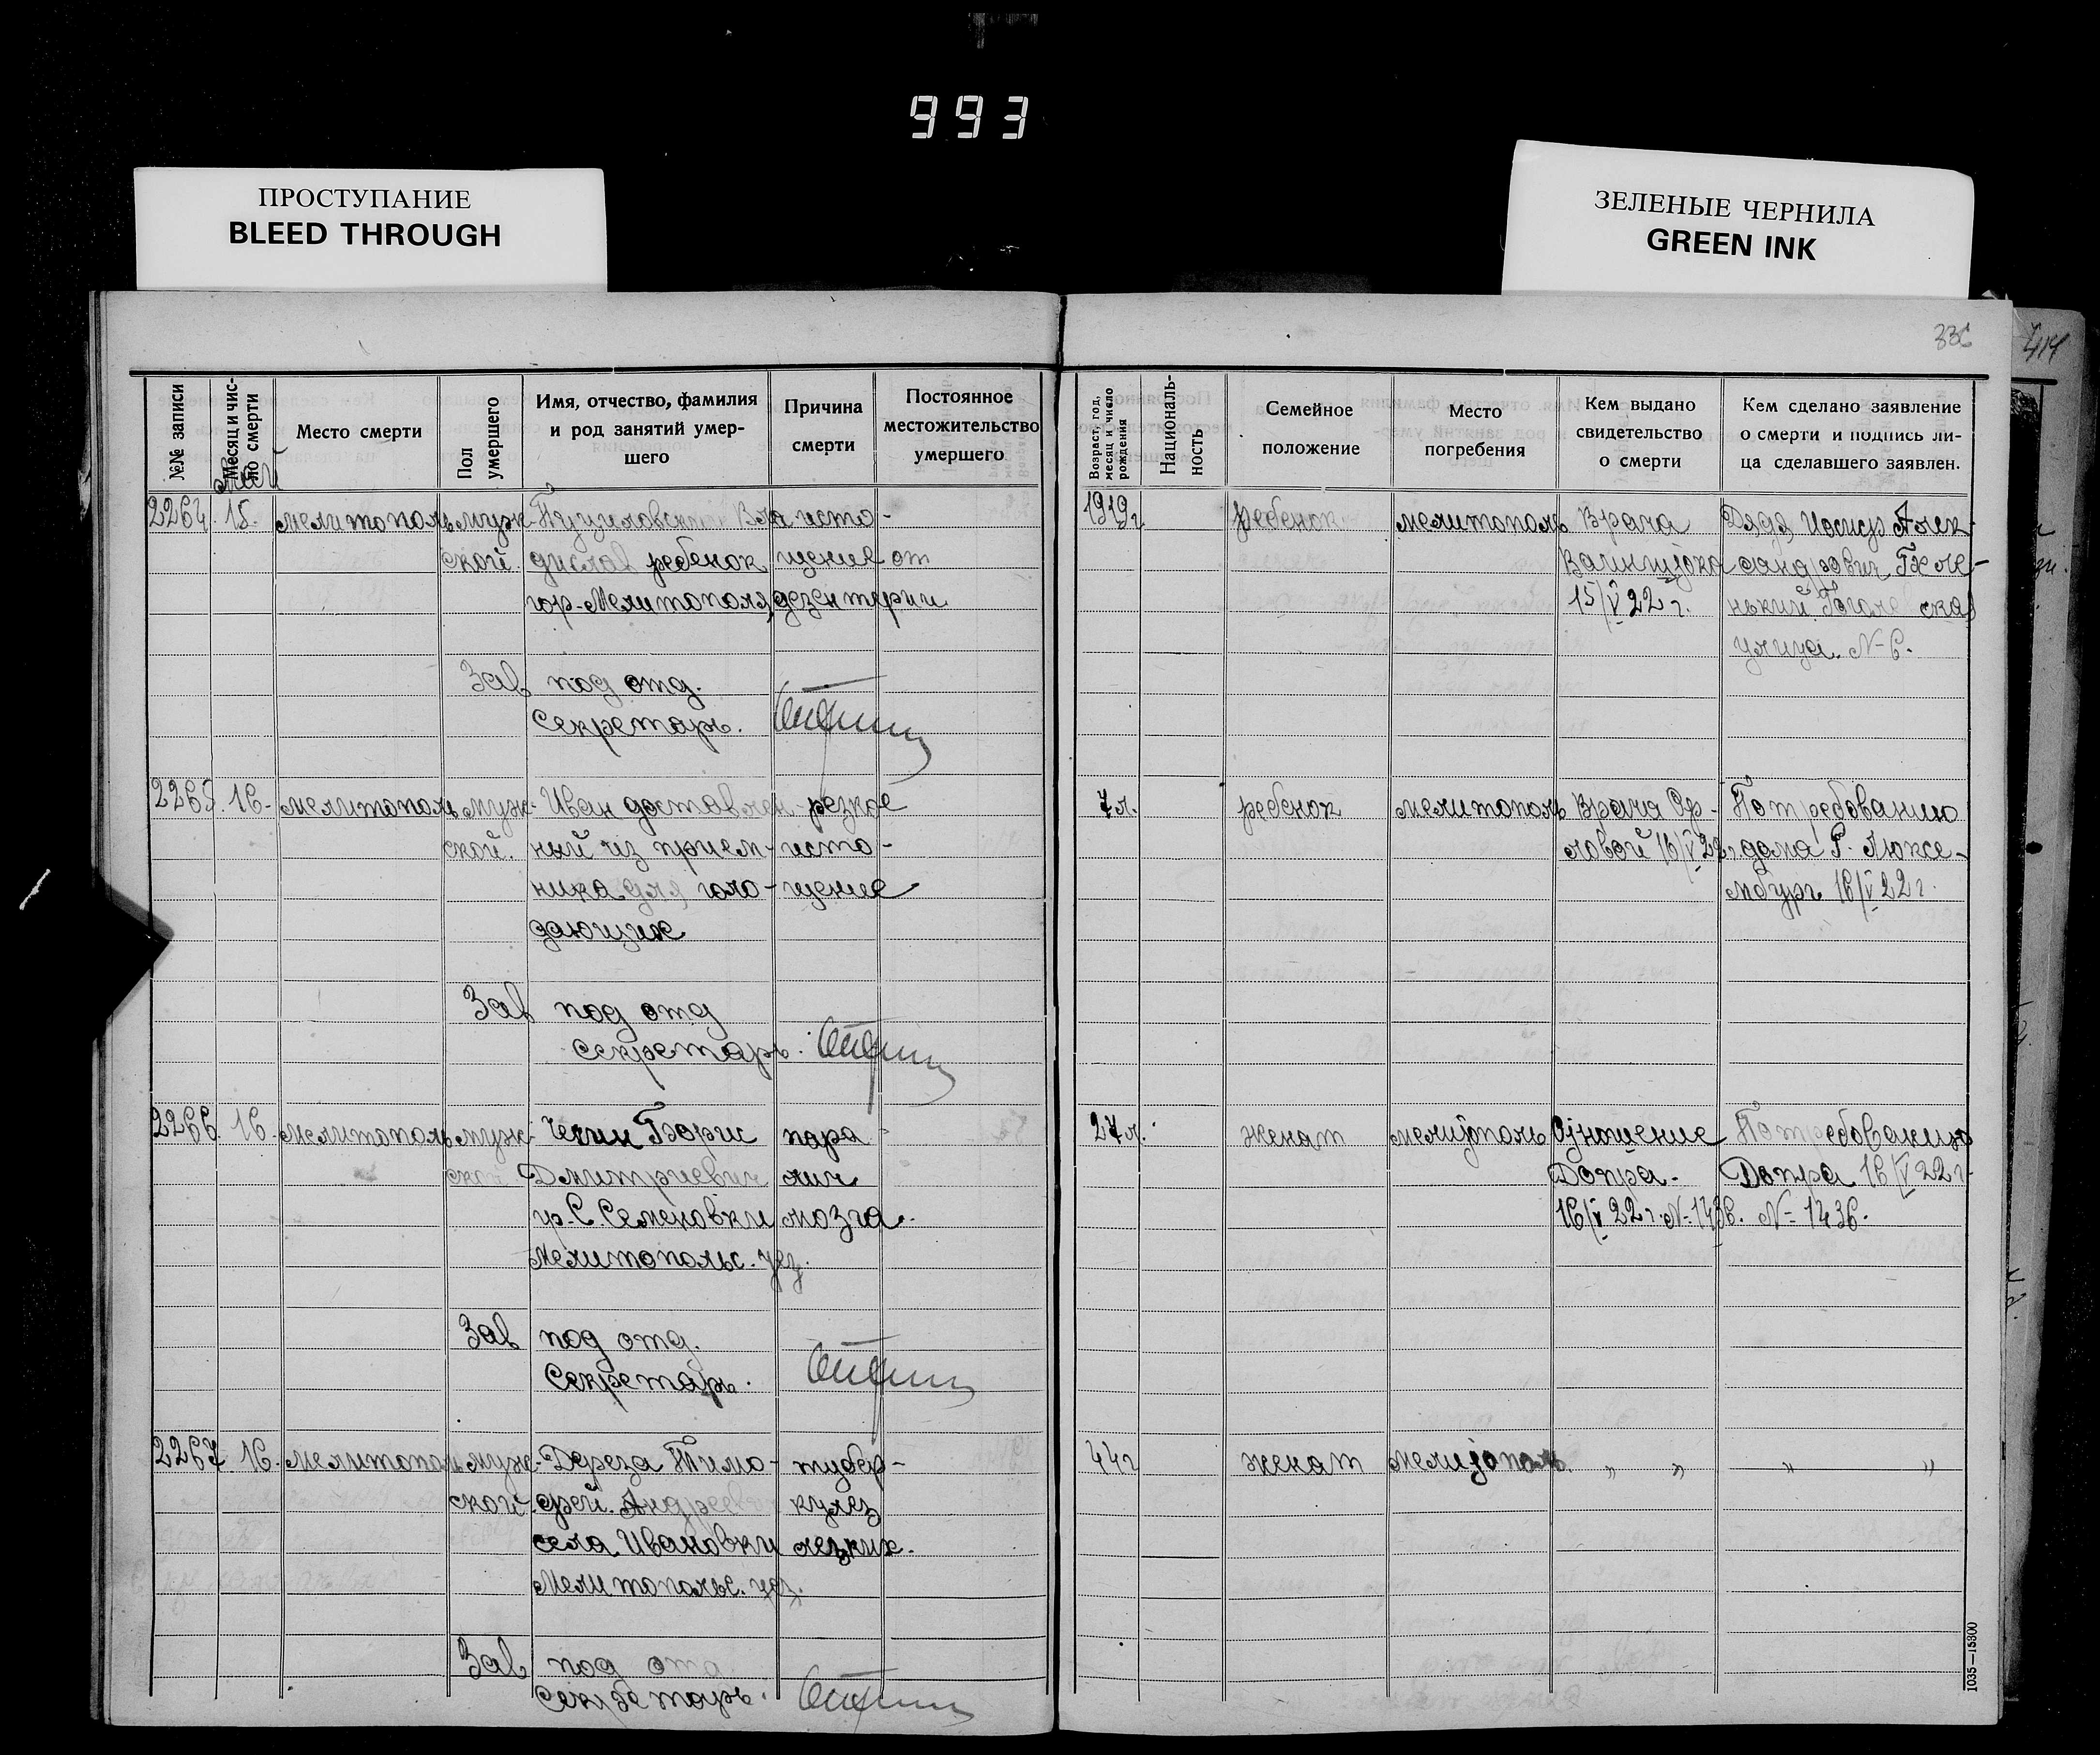 993
ПРОСТУПАНИЕ
BLEED THROUGH
ЗЕЛЕНЫЕ ЧЕРНИЛА
GREEN INK
414
№№ записи
Месяц и чис-
ло смерти
Место смерти
Пол
умершего
Имя, отчество, фамилия
и род занятий умер-
шего
Причина
смерти
Постоянное
местожительство
умершего
Возраст, год,
месяц и число
рождения
Националь-
ность
Семейное
положение
Место
погребения
Кем выдано
свидетельство
о смерти
Кем сделано заявление
о смерти и подпись ли-
ца сделавшего заявлен.
Май
2264. 15. мелитополь муж- Вла исто- 1919г. ребенок мелитополь Врача Дядя Иосиф Алек-
ской. дислав ребенок щение от сандрович Беле-
гор. Мелитополя дезентерии 15/V 22 г. нький
улица. N-6.
Зав под отд.
Секретарь.
2265. 16. мелитополь муж- Иван доставлен- резкое 7 л. ребенок мелитополь Врача Ор- По требованию
ской. ный из прием- исто- ловой 16/V 22 г. дома Р. Люксе-
ника для голо- щение мбург 16/V 22 г.
дающих
Зав под отд
секретарь.
2266. 16. мелитополь муж- Борис пара- 27 л. женат мелитополь Отношение По требованию
ской Дмитриевич лич Допра. Допра 16/V 22 г.
гр. С. Семеновки мозга. 16/V 22 г. N-1436. N- 1436.
Мелитопольс. уез.
Зав под отд.
Секретарь.
2267. 16. Мелитополь муж- Дереза Тимо- тубер- 44 г женат мелитополь. " " " "
ской. фей. Андреев кулез
села Ивановки легких.
Мелитопольс. уез.
Зав под отд
Секретарь.
1035—15300